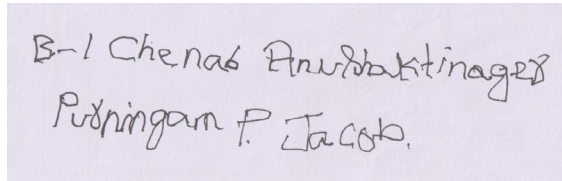 B-1 Chenab Anushaktinagar
Purningam P. Jacob.